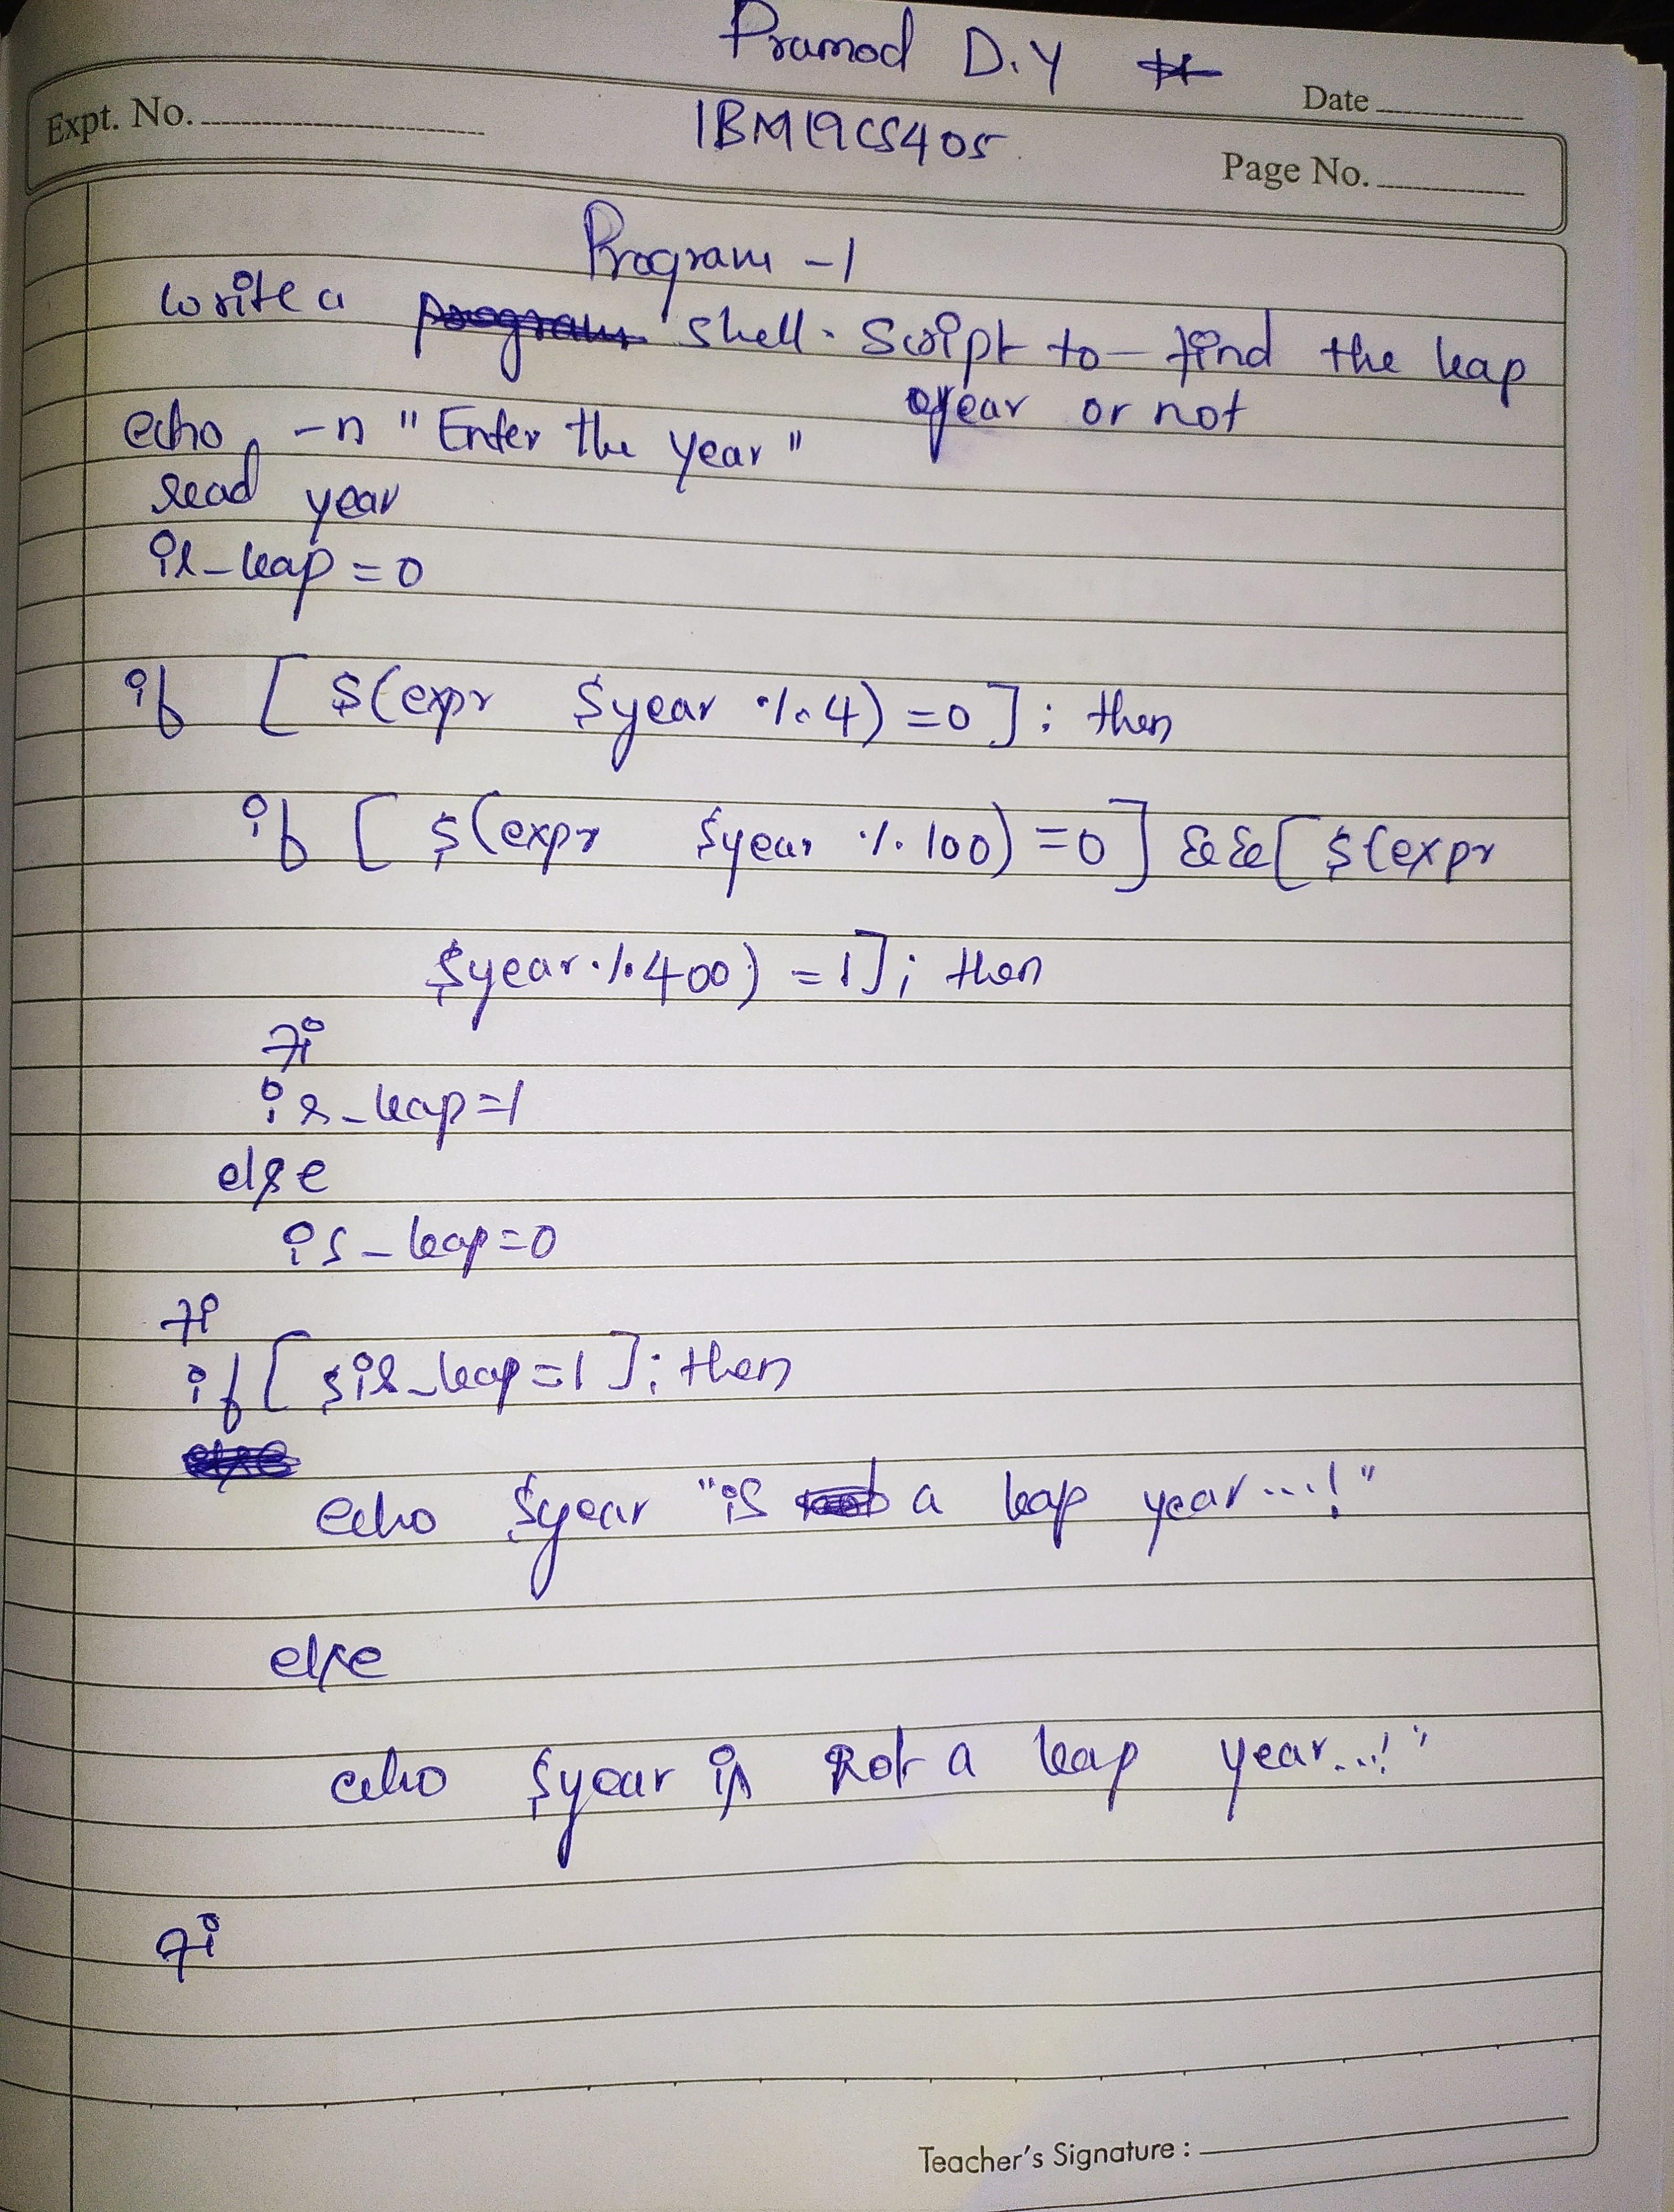 Pramod D.Y
Expt. No.
1BM19CS405
Date
Page No.
Program -1
write a shell. Script to find the leap
year or not
echo -n "Enter the year"
read year
is_leap=0
if [ $(expr $year % 4) =0 ]; then
if [ $(expr $year % 100) =0 ] && [ $(expr
$year % 400) =1 ]; then
fi
is_leap=1
else
is_leap=0
fi
if [ $is_leap=1 ]; then
echo $year "is a leap year...!"
else
echo $year is not a leap year...!"
fi
Teacher's Signature :